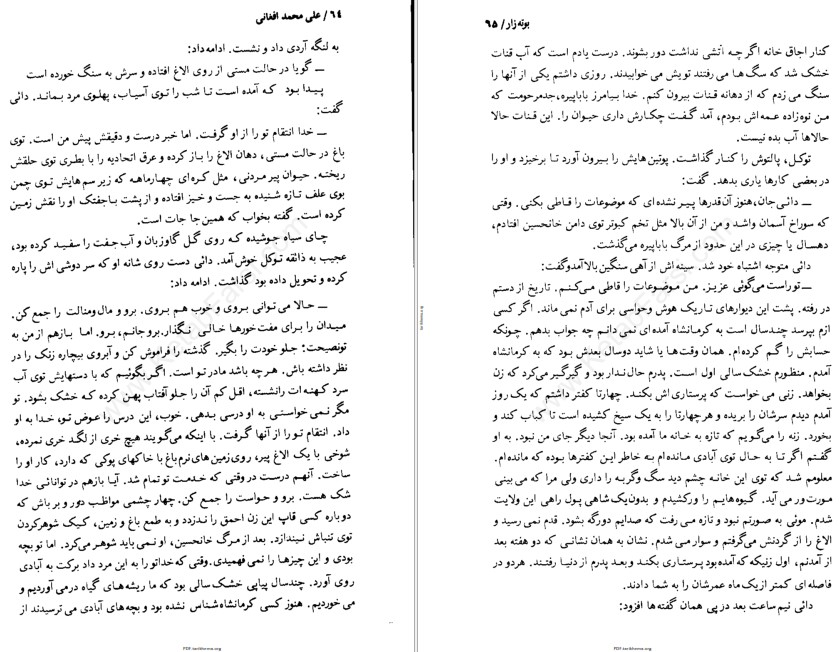 ۶۴ / علی محمد افغانی
به لنگه آردی داد و نشست. ادامه داد:
ــ گویا در حالت مستی از روی الاغ افتاده و سرش به سنگ خورده است
پیدا بود که آمده است تا شب را توی آسیاب، پهلوی مرد بماند. دائی
گفت:
ــ خدا انتقام تو را از او گرفت. اما خبر درست و دقیقش پیش من است. توی
باغ در حالت مستی، دهان الاغ را باز کرده و عرق اتحادیه را با بطری توی حلقش
ریخته. حیوان پیر مردنی، مثل کره‌ای چهارماهه که زیر سم‌هایش توی چمن
بوی علف تازه شنیده به جست و خیز افتاده و از پشت با جفتک او را نقش زمین
کرده است. گفته بخواب که همین جا جات است.
چای سیاه جوشیده که روی گل گاوزبان و آب جفت را سفید کرده بود،
عجیب به ذائقه توکل خوش آمد. دائی دست روی شانه او که سر دوشی اش را پاره
کرده و تحویل داده بود گذاشت. ادامه داد:
ــ حالا می توانی بروی و خوب هم بروی. برو و مال ومنالت را جمع کن.
میدان را برای مفت خورها خالی نگذار. برو جانم، برو. اما بازهم از من به
تو نصیحت؛ جلو خودت را بگیر. گذشته را فراموش کن و آبروی بیچاره زنک را در
نظر داشته باش. هر چه باشد مادر تو است. اگر بگوئیم که با دستهایش توی آب
سرد کهنه ات رانشسته، اقل کم آن را جلو آفتاب پهن کرده که خشک بشود. تو
مگر نمی خواستی به او درسی بدهی. خوب، این درس را عوض تو، خدا به او
داد. انتقام تو را از آنها گرفت. با اینکه می‌گویند هیچ خری از لگد خری نمرده،
شوخی با یک الاغ پیر، روی زمین‌های نرم باغ با خاکهای پوکی که دارد، کار او را
ساخت. آنهم درست در وقتی که خدمت تو تمام شد. آیا بازهم در توانائی خدا
شک هست. برو و حواست را جمع کن. چهار چشمی مواظب دور و بر باش که
دوباره کسی قاپ این زن احمق را ندزدد و به طمع باغ و زمین، کیک شوهرکردن
توی تنبانش نیندازد. بعد از مرگ خانحسین، او نمی باید شوهر می‌کرد. اما تو بچه
بودی و این چیزها را نمی فهمیدی. وقتی که خدا تو را به این مرد داد برکت به آبادی
روی آورد. چند سال پیاپی خشک سالی بود که ما ریشه های گیاه درمی آوردیم و
می خوردیم. هنوز کسی کرمانشاه شناس نشده بود و بچه های آبادی می ترسیدند از
بوته زار / ۶۵
کنار اجاق خانه اگر چه آتشی نداشت دور بشوند. درست یادم است که آب قنات
خشک شد که سگ ها می رفتند تویش می خوابیدند. روزی داشتم یکی از آنها را
سنگ می زدم که از دهانه قنات بیرون کنم. خدا بیامرز باباپیره، جد مرحومت که
من نوه زاده عمه اش بودم، آمد گفت چکارش داری حیوان را. این قنات حالا
حالاها آب بده نیست.
توکل، پالتوش را کنار گذاشت. پوتین هایش را بیرون آورد تا برخیزد و او را
در بعضی کارها یاری بدهد. گفت:
ــ دائی جان، هنوز آن قدرها پیر نشده ای که موضوعات را قاطی بکنی. وقتی
که سوراخ آسمان واشد و من از آن بالا مثل تخم کبوتر توی دامن خانحسین افتادم،
دهسال یا چیزی در این حدود از مرگ باباپیره می‌گذشت.
دائی متوجه اشتباه خود شد. سینه اش از آهی سنگین بالا آمد و گفت:
ــ تو راست می‌گوئی عزیز. من موضوعات را قاطی می‌کنم. تاریخ از دستم
در رفته. پشت این دیوارهای تاریک هوش وحواسی برای آدم نمی ماند. اگر کسی
ازم بپرسد چند سال است به کرمانشاه آمده ای نمی دانم چه جواب بدهم. چونکه
حسابش را گم کرده ام. همان وقت ها یا شاید دو سال بعدش بود که به کرمانشاه
آمدم. منظورم خشک سالی اول است. پدرم حال ندار بود و گیرگیر می‌کرد که زن
بخواهد. زنی می خواست که پرستاری اش بکند. چهارتا کفتر داشتم که یک روز
آمدم دیدم سرشان را بریده و هر چهارتا را به یک سیخ کشیده است تا کباب کند و
بخورد. زنه را می‌گویم که تازه به خانه ما آمده بود. آنجا دیگر جای من نبود. به او
گفتم اگر تا به حال توی آبادی مانده ام به خاطر این کفترها بوده که مانده ام.
معلومم شد که توی این خانه چشم دید سگ وگربه را داری ولی مرا که می بینی
مورت ور می آید. گیوه هایم را ورکشیدم و بدون یک شاهی پول راهی این ولایت
شدم. موئی به صورتم نبود و تازه می رفت که صدایم دورگه بشود. قدم نمی رسید و
الاغ را از گردنش می‌گرفتم و سوار می شدم. نشان به همان نشانی که دو هفته بعد
از آمدنم، اول زنیکه که آمده بود پرستاری بکند وبعد پدرم از دنیا رفتند. هر دو در
فاصله ای کمتر از یک ماه عمرشان را به شما دادند.
دائی نیم ساعت بعد در پی همان گفته ها افزود:
PDF.tarikhema.org
PDF.tarikhema.org